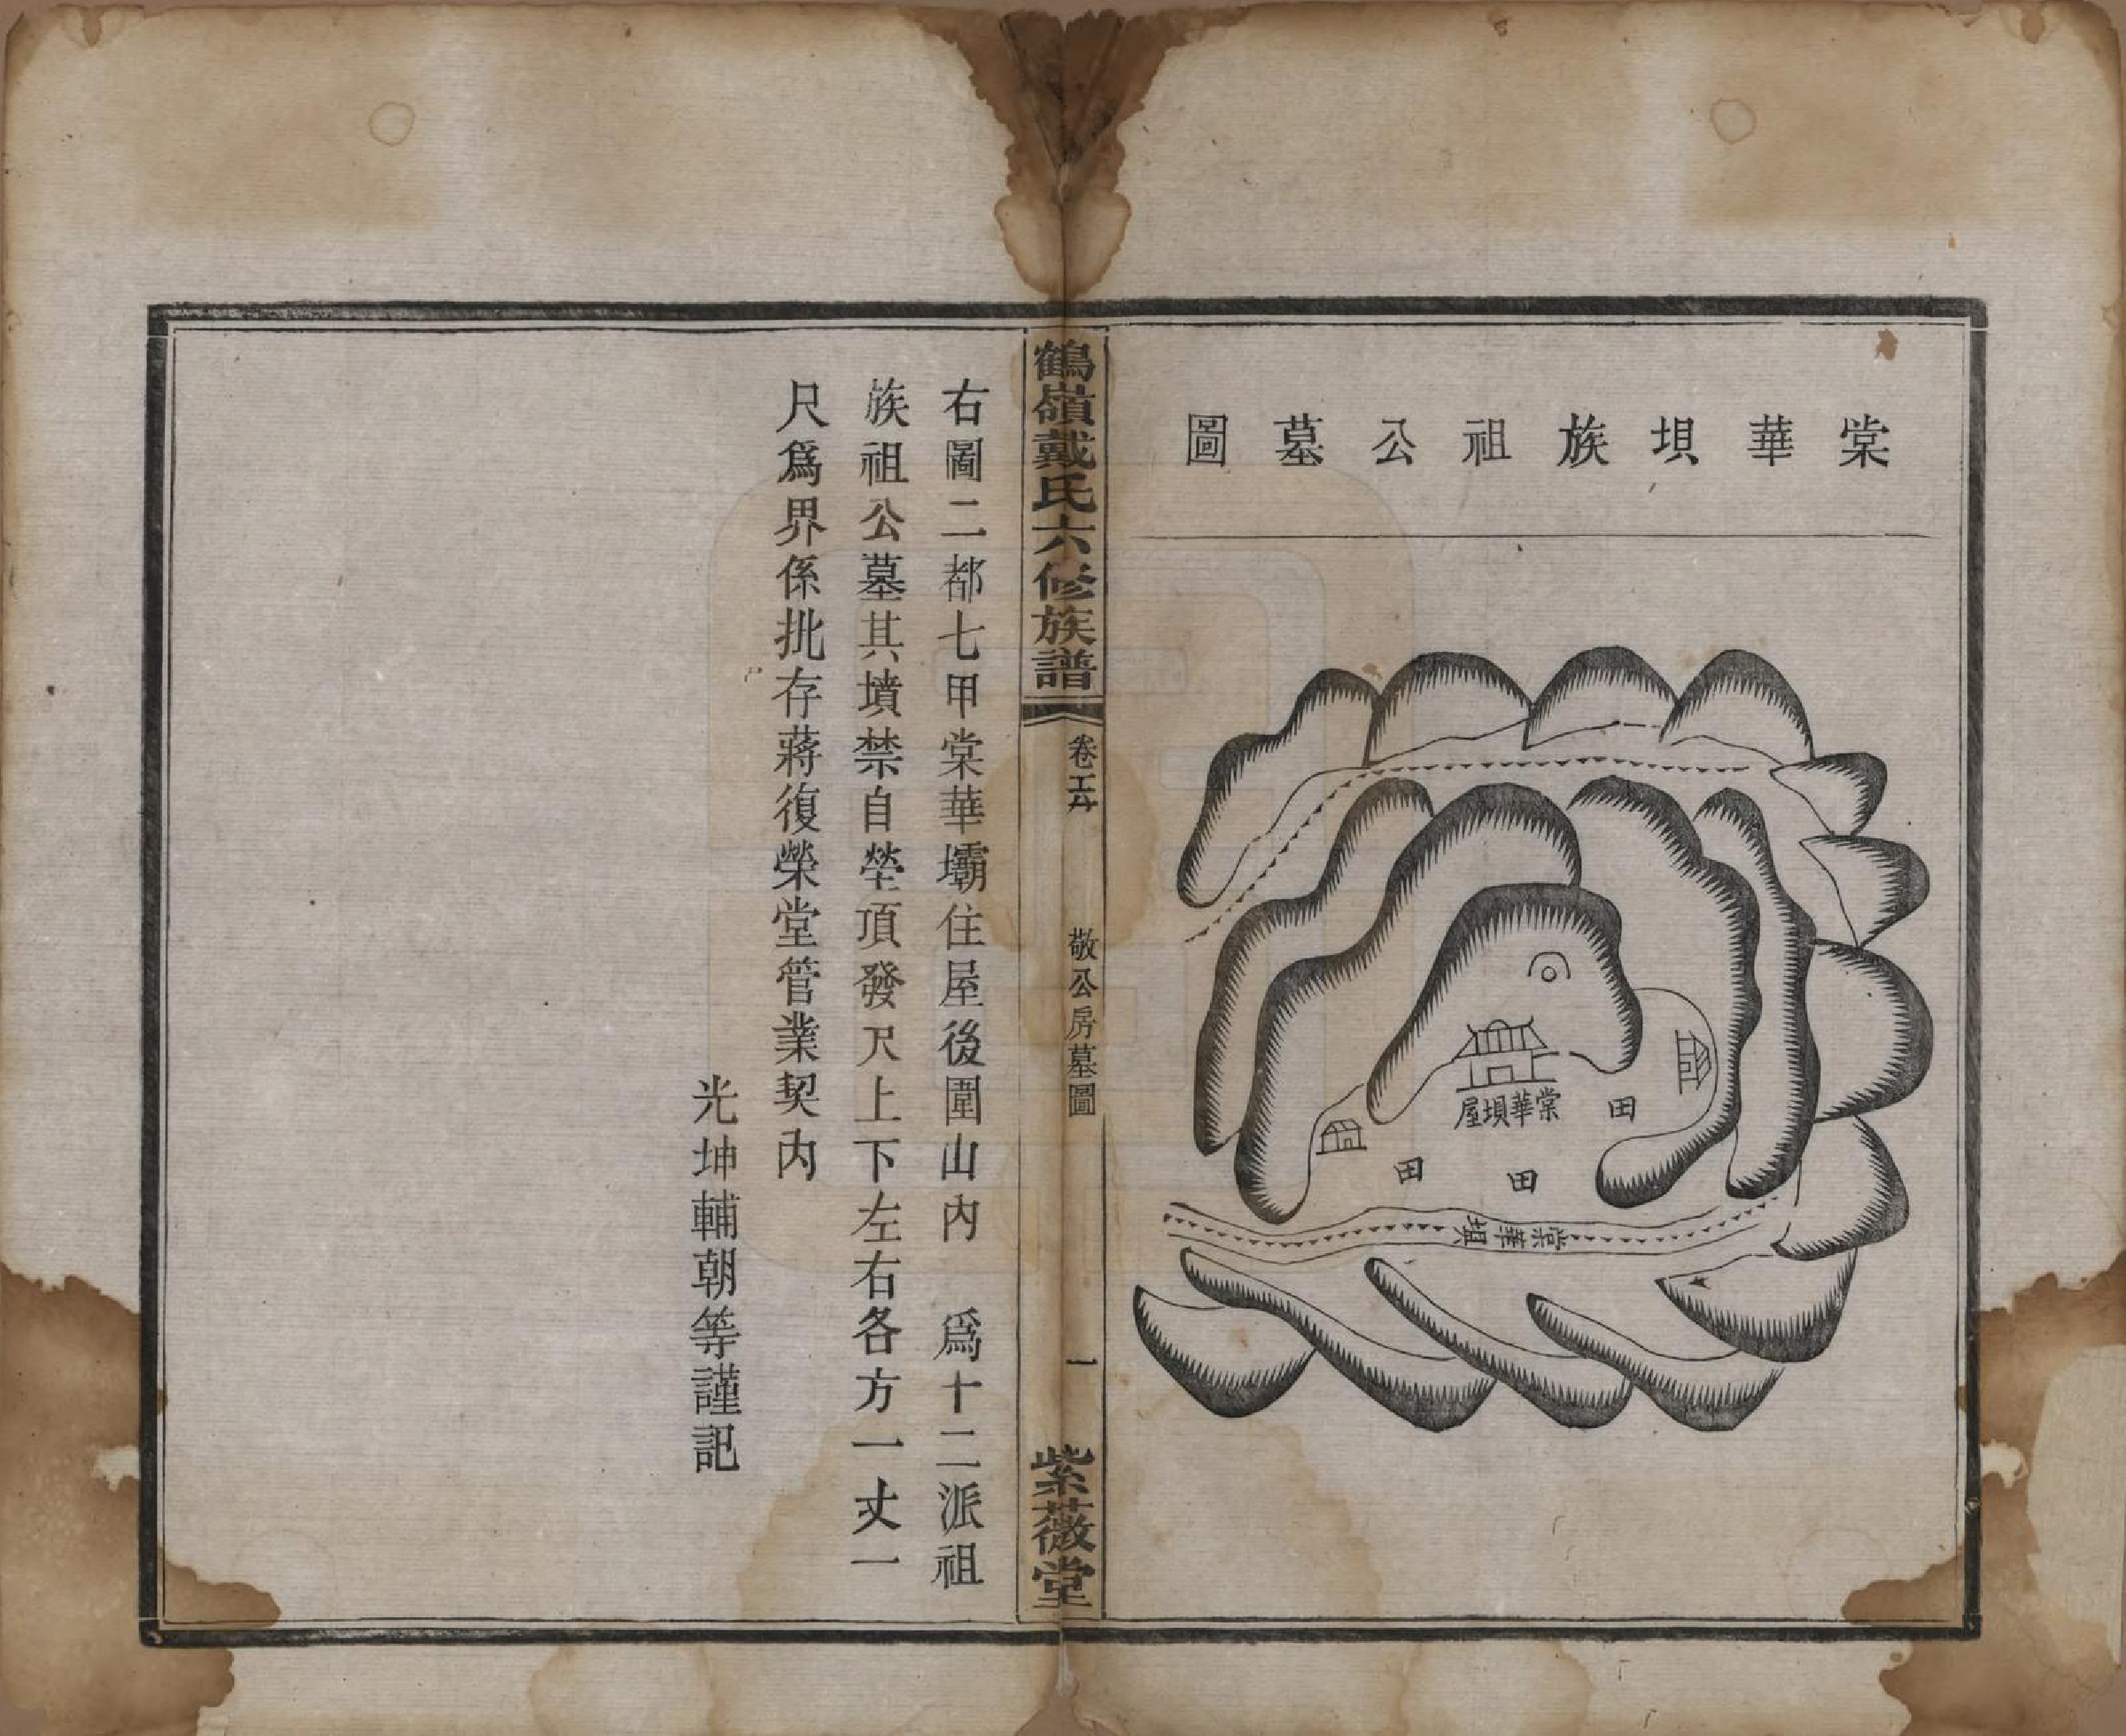 棠華垻族祖公墓圖
棠華垻屋
田
田
田
棠華垻
鶴嶺戴氏六修族譜
卷
敬公房墓圖
一
紫薇堂
右圖二都七甲棠華壩住屋後圍山內　爲十二派祖
族祖公墓其墳禁自塋頂發尺上下左右各方一丈一
尺爲界係批存蔣復榮堂管業契內
光坤輔朝等謹記